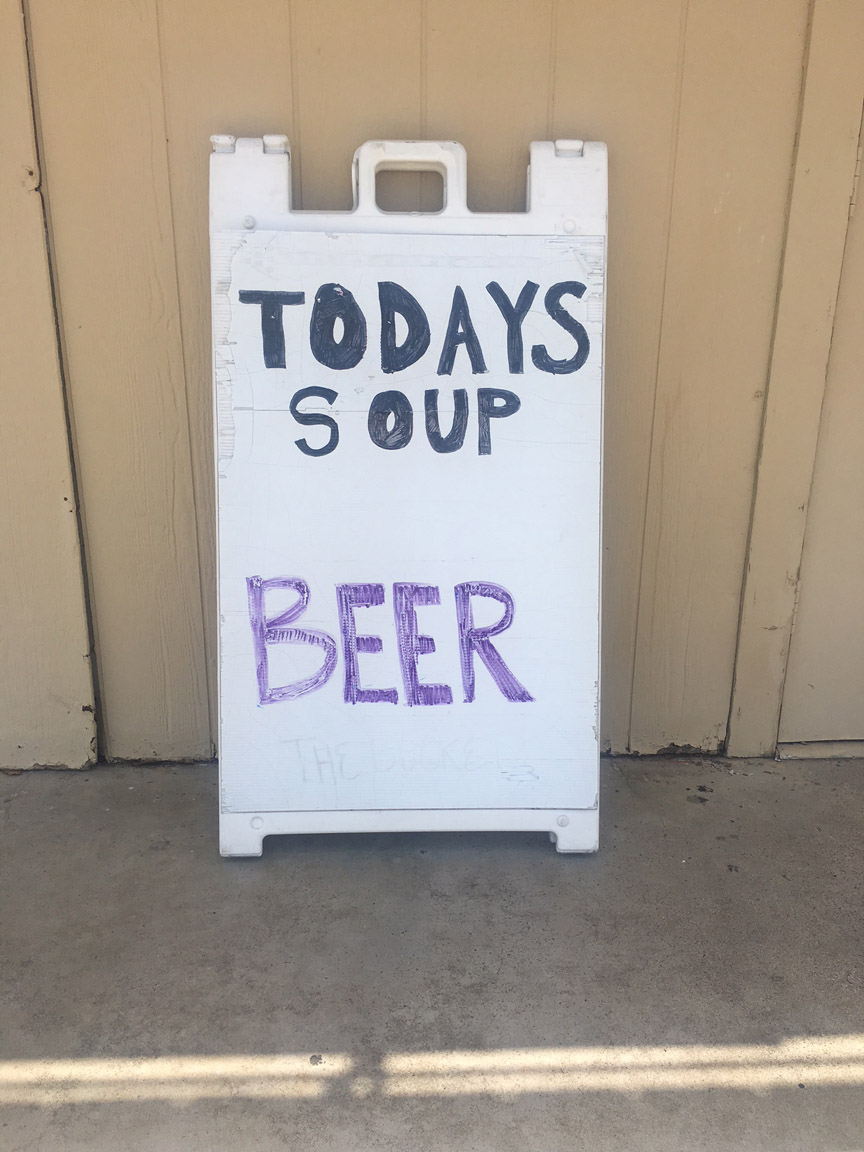 TODAYS
SOUP
BEER
THE